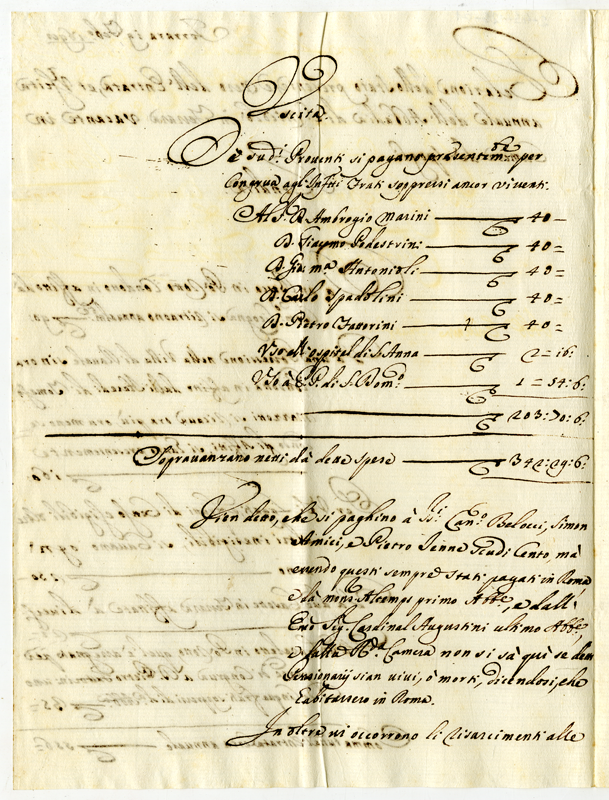 Uscita
De sud.i Proventi si pagano presentem.te per
Congrua agl'Inf.tti Frati soppressi ancor viventi.
Al P. D. Ambrogio Marini 40 =
D. Giacomo Pedestrini 40 =
D. Gio: m.a Antonioli 40 =
D. Carlo Spadolini 40 =
D. Pietro Faverini 40 =
All'ospital di S. Anna 2 = 16:
à P.P. di S. Dom.o 1 = 54: 6:
203: 70: 6:
Sopravanzano netti dà dette spese 342: 29: 6:
Non dico, che si paghino à Ss.i Can.o Belocci, Simon
Amici, e Pietro Jenne Scudi Cento, mà
essendo questi sempre stati pagati in Roma
e dà mons. Altemps primo Abb.e, e dall'
Emo Sig. Cardinal Augustini ultimo Abb.e,
e dalla R.da Camera non si sà quì se detti
Pensionarij sian vivi, ò morti, dicendosi, che
habitassero in Roma.
In oltre vi occorrono li risarcimenti alle